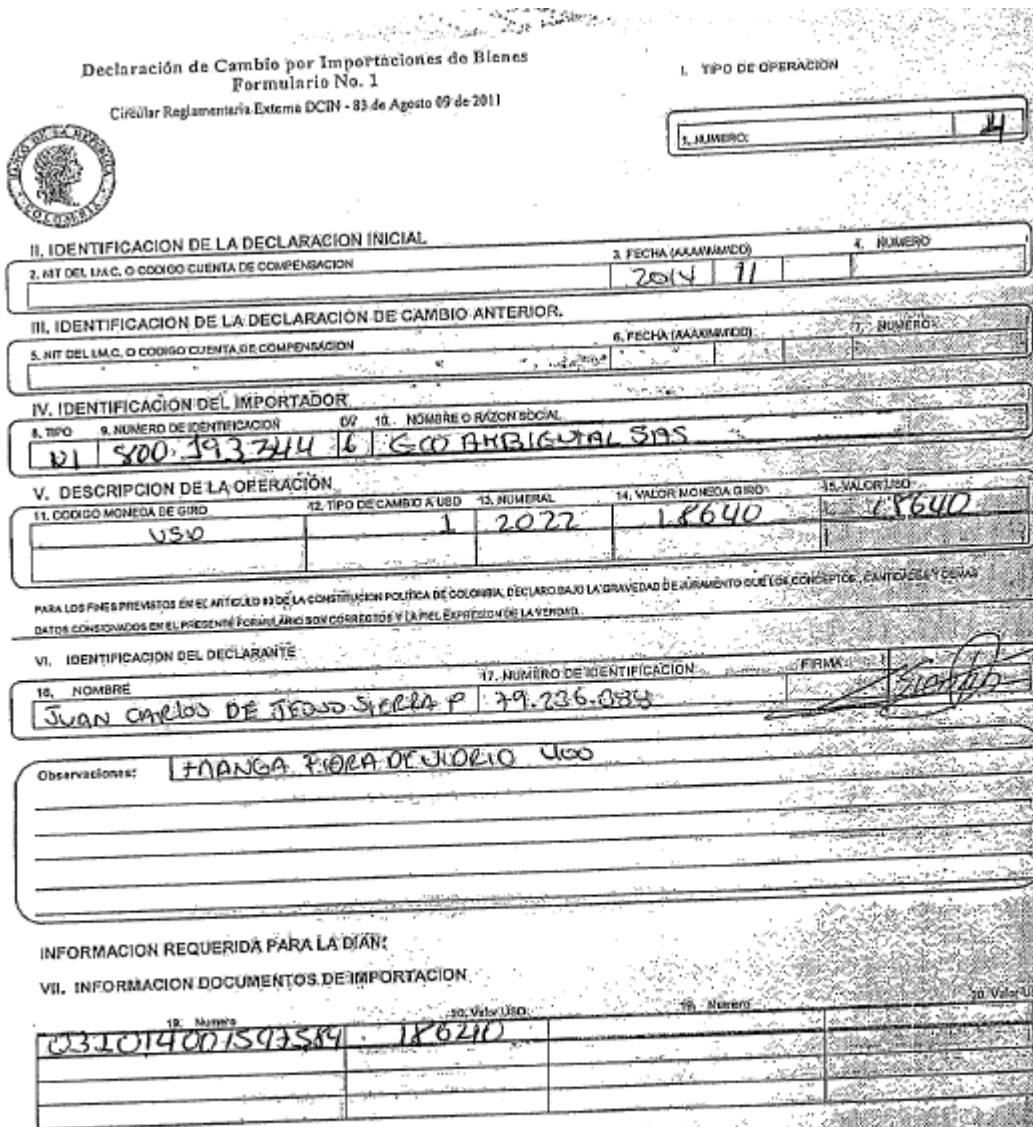 Declaración de Cambio por Importaciones de Bienes
Formulario No. 1
Circular Reglamentaria Externa DCIN - 83 de Agosto 09 de 2011
I. TIPO DE OPERACION
1. NUMERO:
BANCO DE LA REPUBLICA
COLOMBIA
II. IDENTIFICACION DE LA DECLARACION INICIAL
2. NIT DEL I.M.C. O CODIGO CUENTA DE COMPENSACION 3. FECHA (AAAA/MM/DD) 4. NUMERO
2014 11
III. IDENTIFICACION DE LA DECLARACION DE CAMBIO ANTERIOR.
5. NIT DEL I.M.C. O CODIGO CUENTA DE COMPENSACION 6. FECHA (AAAA/MM/DD) 7. NUMERO
IV. IDENTIFICACION DEL IMPORTADOR
8. TIPO 9. NUMERO DE IDENTIFICACION DV 10. NOMBRE O RAZON SOCIAL
NI 800.193744 6 ECO AMBIENTAL SAS
V. DESCRIPCION DE LA OPERACIÓN
11. CODIGO MONEDA DE GIRO 12. TIPO DE CAMBIO A USD 13. NUMERAL 14. VALOR MONEDA GIRO 15. VALOR USD
USD 1 2022 18640 18640
PARA LOS FINES PREVISTOS EN EL ARTICULO 83 DE LA CONSTITUCION POLITICA DE COLOMBIA, DECLARO BAJO LA GRAVEDAD DE JURAMENTO QUE LOS CONCEPTOS, CANTIDADES Y DEMAS
DATOS CONSIGNADOS EN EL PRESENTE FORMULARIO SON CORRECTOS Y LA FIEL EXPRESION DE LA VERDAD.
VI. IDENTIFICACION DEL DECLARANTE
16. NOMBRE 17. NUMERO DE IDENTIFICACION FIRMA
JUAN CARLOS DE JESUS SIERRA P 79.236.
Observaciones: MANGA FIBRA DE VIDRIO 400
INFORMACION REQUERIDA PARA LA DIAN:
VII. INFORMACION DOCUMENTOS DE IMPORTACION
19. Numero 20. Valor USD 19. Numero 20. Valor U
18640